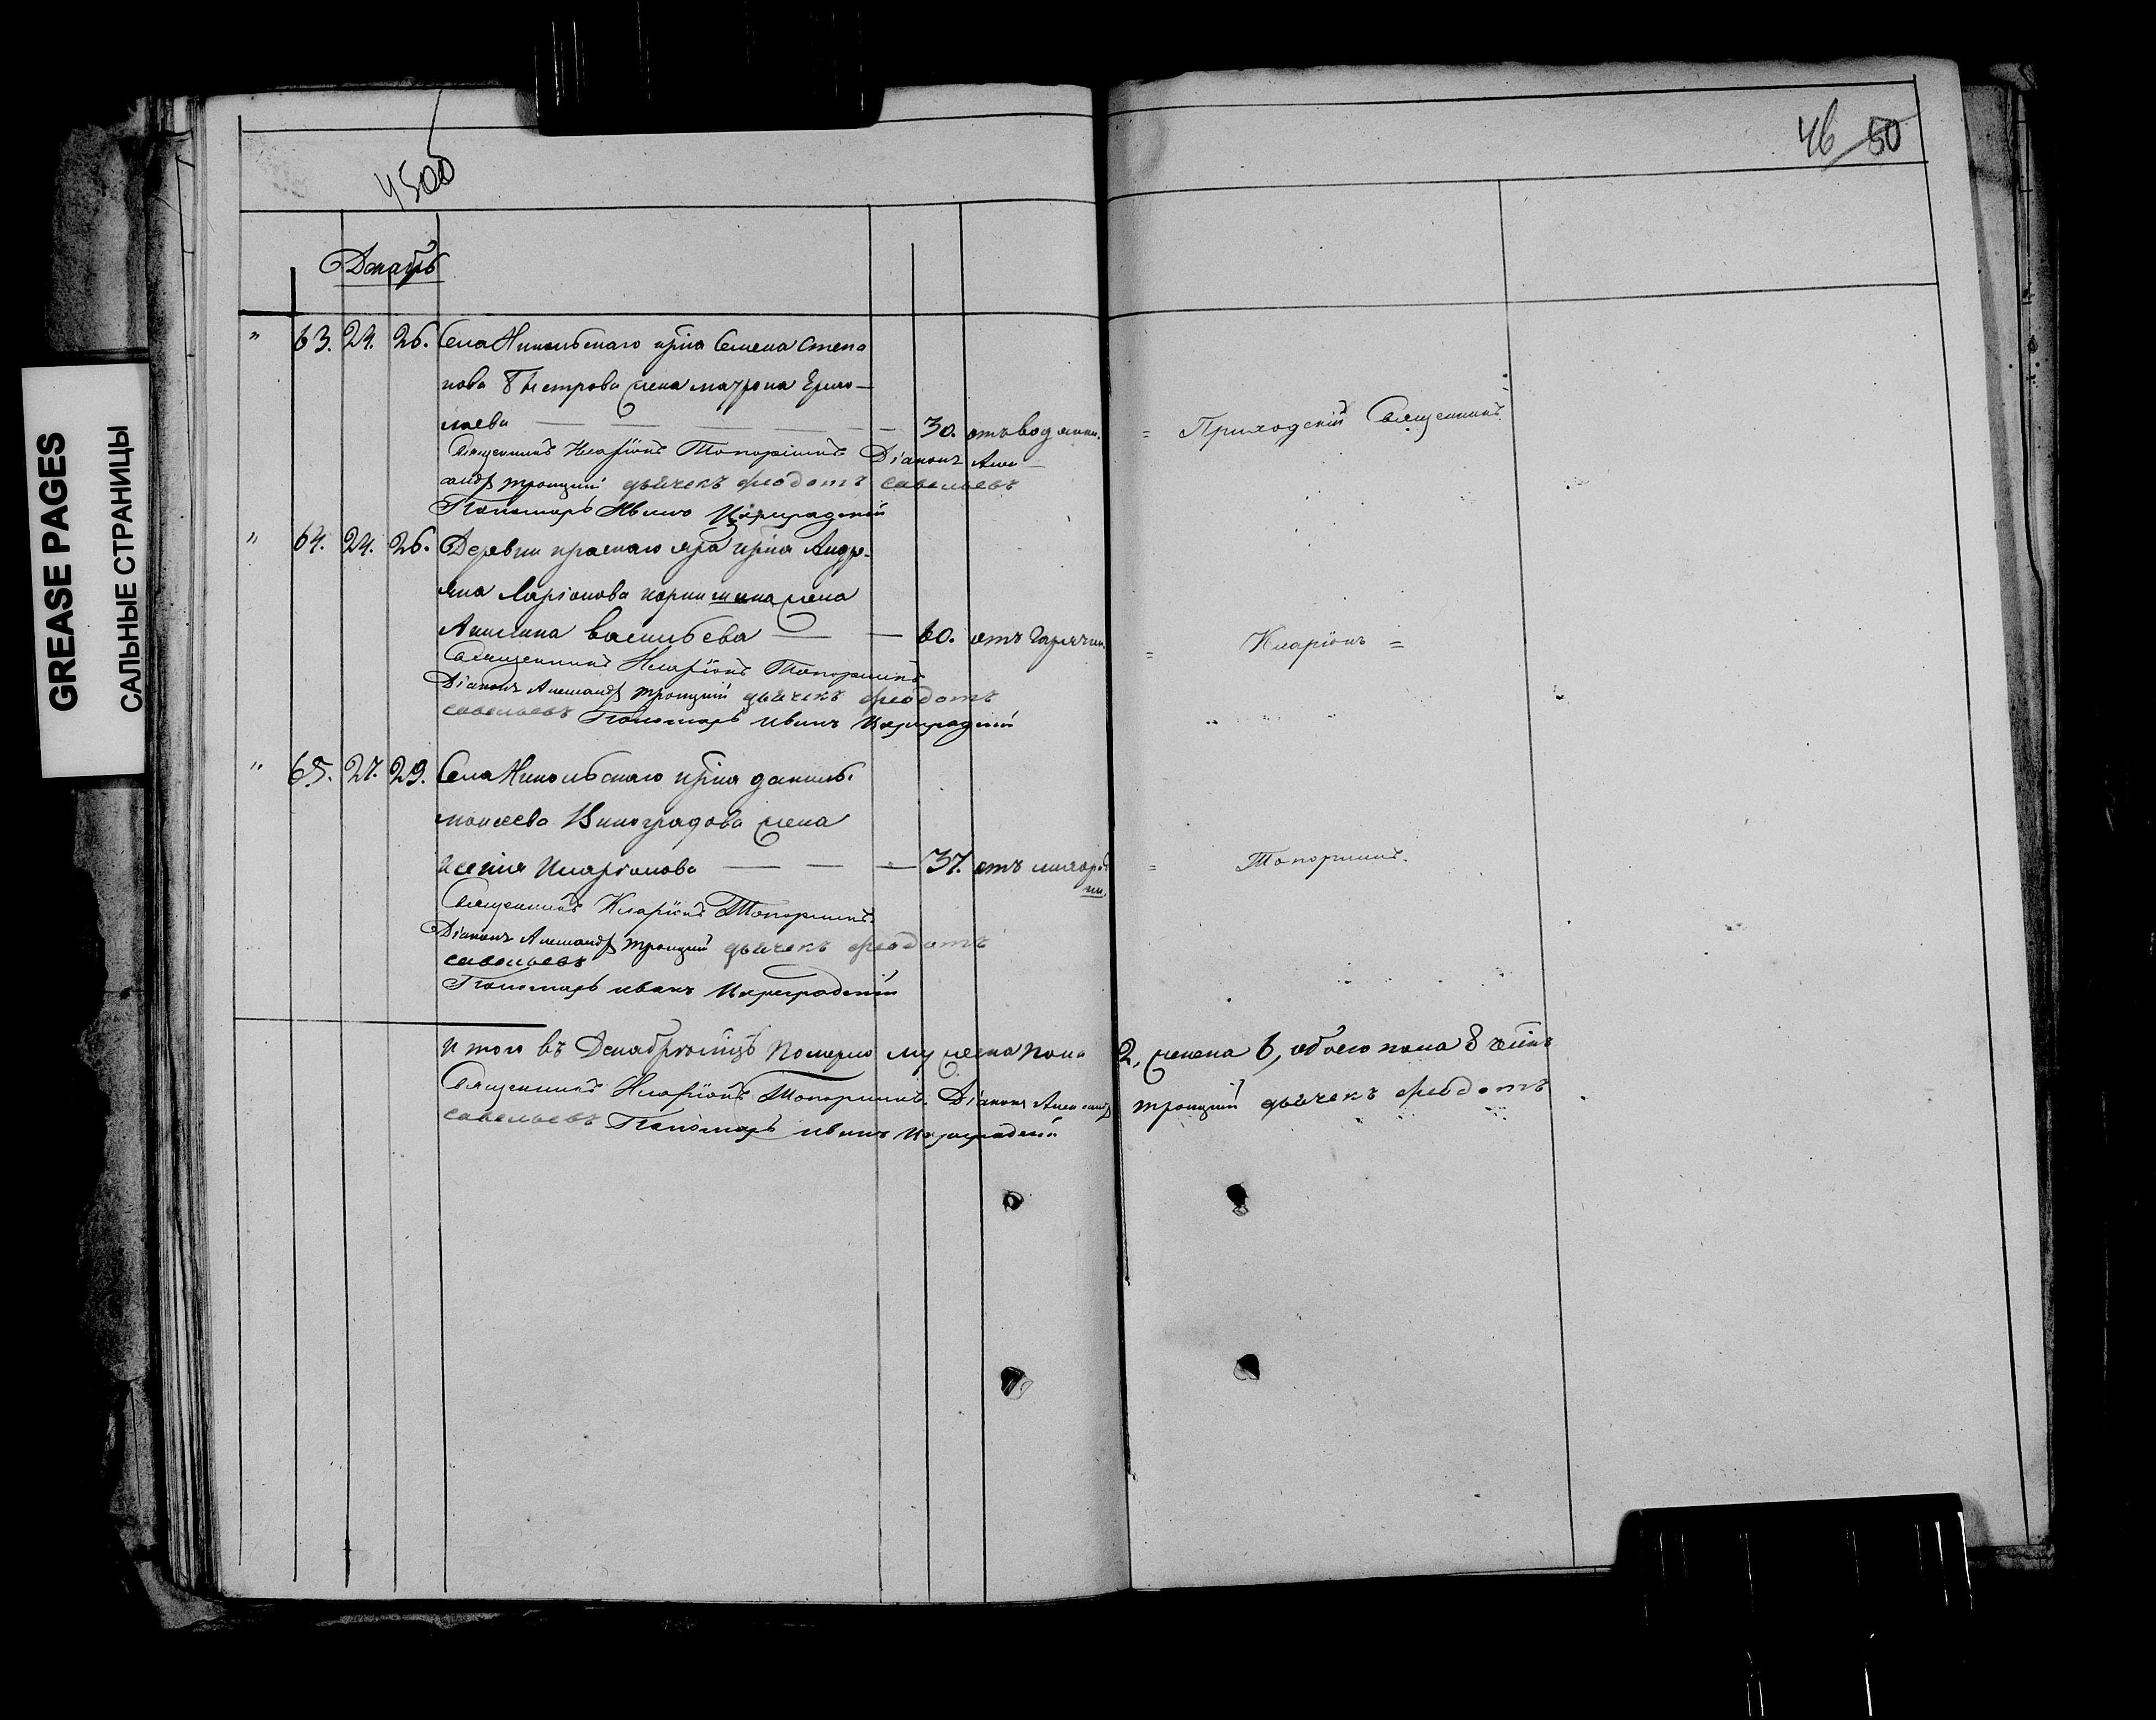 GREASE PAGES
САЛЬНЫЕ СТРАНИЦЫ
4500
46 50
Декабрь
" 63. 24. 26. Села Никольскаго кр҃на Семена Степа
нова Быстрова жена матрона Ермо-
лаева — 30. отъ водянки. = Приходскій Священникъ
Священникъ Иларіонъ Топорнинъ Діаконъ Алек-
сандръ Троицкій дьячекъ Феодотъ Савельевъ
Пономарь Иванъ Цареградскій
" 64. 24. 26. Деревни краснаго яра кр҃на Андре-
яна Ларіонова жена
Акилина Васильева — 60. отъ Горячки. = Иларіонъ =
Священникъ Иларіонъ Топорнинъ
Діаконъ Александръ Троицкій дьячекъ Феодотъ
Савельевъ Пономарь Иванъ Цареградскій
" 65. 27. 29. Села Никольскаго кр҃на данилы
моисеева Виноградова жена
ксенія Иларіонова — 37. отъ = Топорнинъ.
Священникъ Иларіонъ Топорнинъ.
Діаконъ Александръ Троицкій дьячекъ Феодотъ
Савельевъ
Пономарь иванъ Цареградскій
Итого въ Декабрѣ м҃цѣ померло мужеска пола 2, женска 6, обоего пола 8
Священникъ Иларіонъ Топорнинъ. Діаконъ Александръ Троицкій дьячекъ Феодотъ
Савельевъ Пономарь иванъ Цареградскій